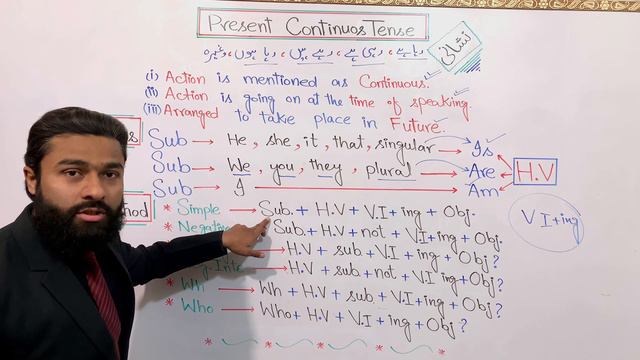 Present Continuos Tense
رہا ہے، رہی ہے، رہے ہیں، رہا ہوں، وغیرہ
نشانی
(i) Action is mentioned as Continuous.
(ii) Action is going on at the time of speaking.
(iii) Arranged to take place in Future.
Sub → He, she, it, that, singular → Is
Sub → We, you, they, plural → Are
Sub → I → Am
H.V
* Simple → Sub. + H.V + V.I + ing + Obj.
* Negative Sub. + H.V + not + V.I + ing + Obj.
→ H.V + sub + V.I + ing + Obj?
→ H.V + sub + not + V.I + ing + Obj?
* Wh → Wh + H.V + sub + V.I + ing + Obj?
* Who → Who + H.V + V.I + ing + Obj?
V I + ing